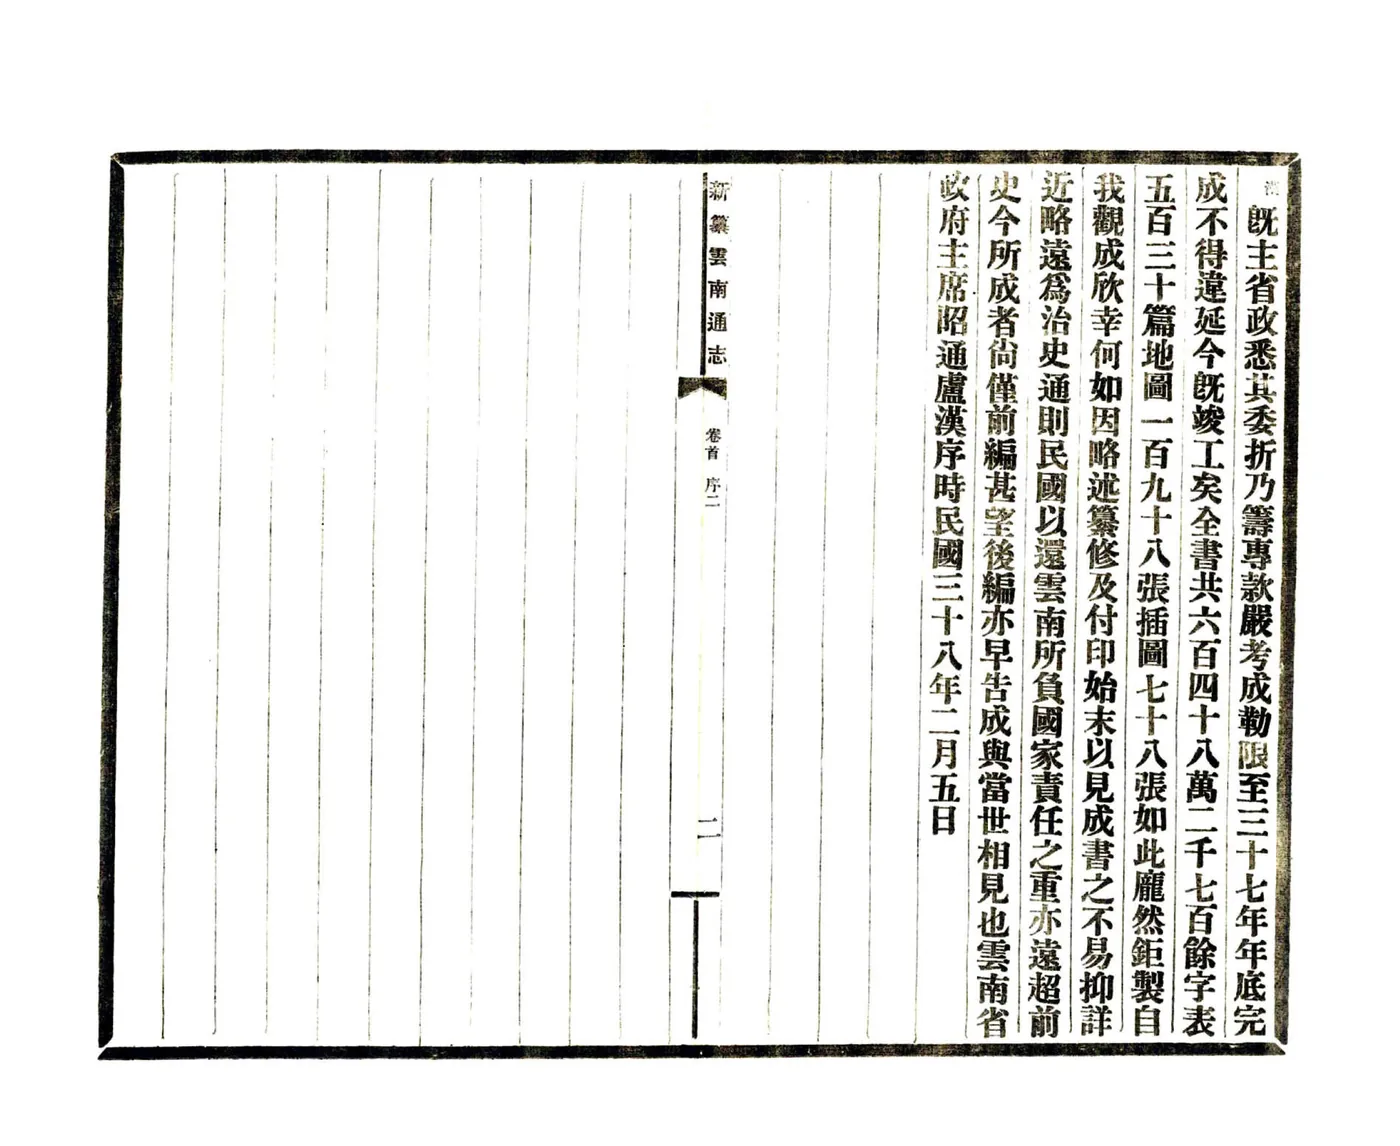 漢旣主省政悉其委折乃籌專款嚴考成勒限至三十七年年底完
成不得違延今旣竣工矣全書共六百四十八萬二千七百餘字表
五百三十篇地圖一百九十八張插圖七十八張如此龐然鉅製自
我觀成欣幸何如因略述纂修及付印始末以見成書之不易抑詳
近略遠爲治史通則民國以還雲南所負國家責任之重亦遠超前
史今所成者尙僅前編甚望後編亦早告成與當世相見也雲南省
政府主席昭通盧漢序時民國三十八年二月五日
新纂雲南通志
卷首 序二
二